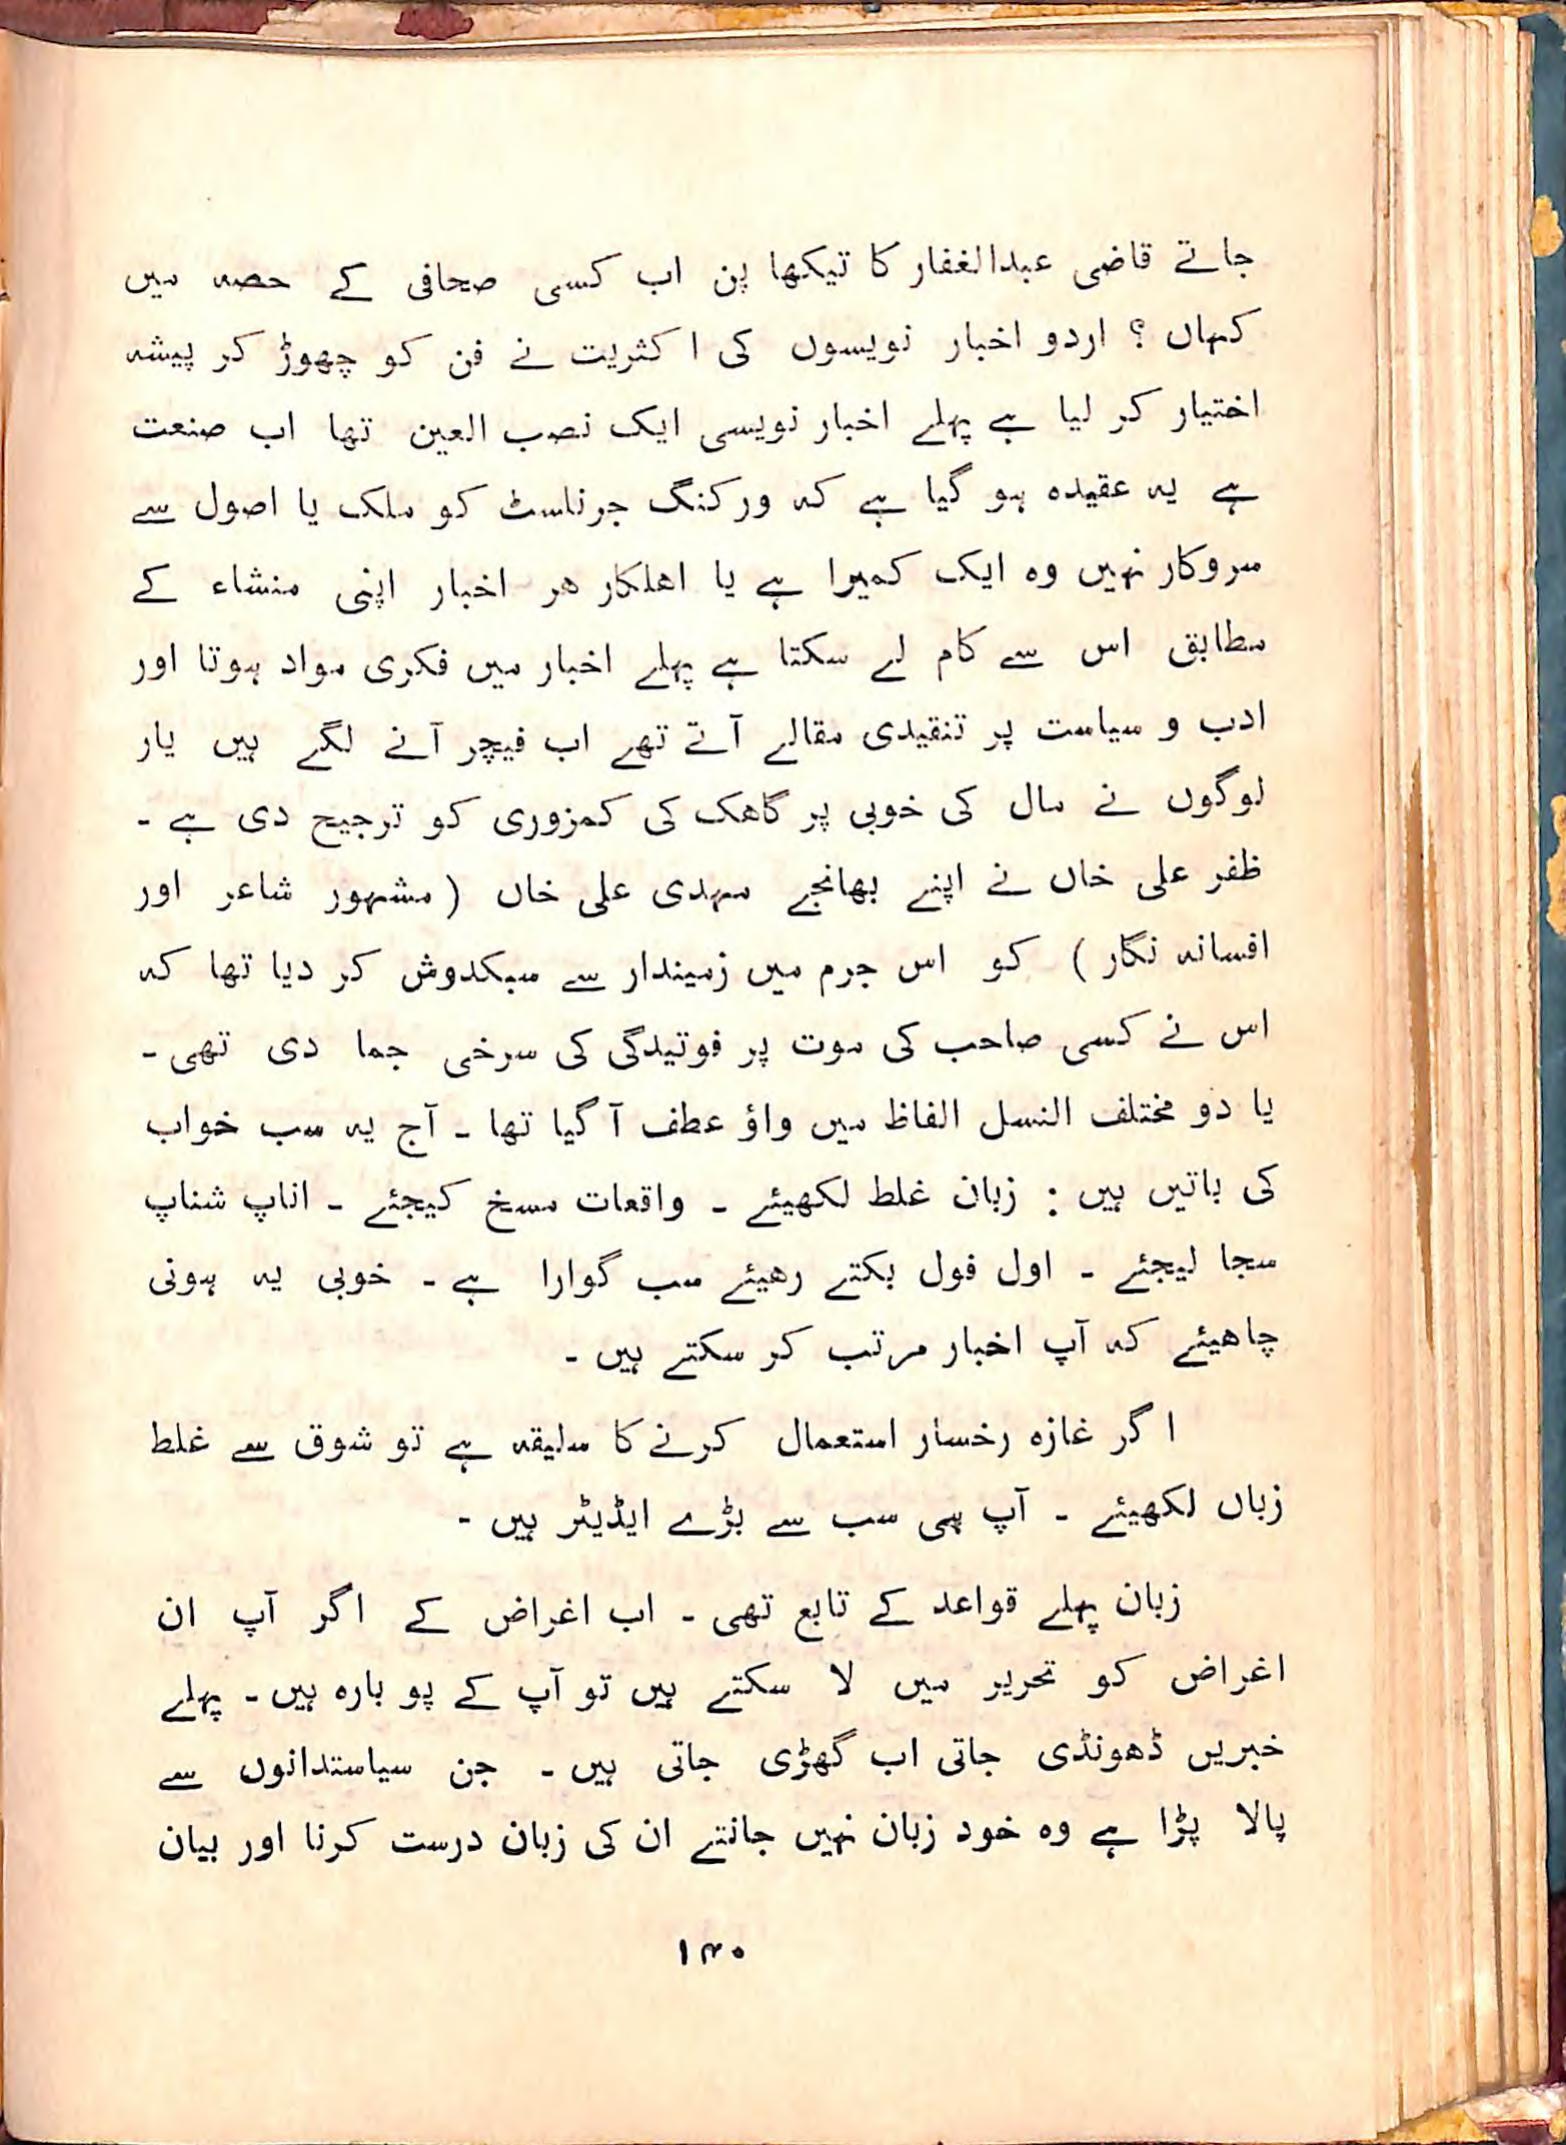 جاتے قاضی عبدالغفار کا تیکھا پن اب کسی صحافی کے حصہ میں
کہاں ؟ اردو اخبار نویسوں کی اکثریت نے فن کو چھوڑ کر پیشہ
اختیار کر لیا ہے پہلے اخبار نویسی ایک نصب العین تھا اب صنعت
ہے یہ عقیدہ ہو گیا ہے کہ ورکنگ جرنلسٹ کو ملک یا اصول سے
سروکار نہیں وہ ایک کمیرا ہے یا اھلکار ھر اخبار اپنی منشاء کے
مطابق اس سے کام لے سکتا ہے پہلے اخبار میں فکری مواد ہوتا اور
ادب و سیاست پر تنقیدی مقالے آتے تھے اب فیچر آنے لگے ہیں یار
لوگوں نے مال کی خوبی پر گاھک کی کمزوری کو ترجیح دی ہے ۔
ظفر علی خاں نے اپنے بھانجے مہدی علی خاں ( مشہور شاعر اور
افسانہ نگار ) کو اس جرم میں زمیندار سے سبکدوش کر دیا تھا کہ
اس نے کسی صاحب کی موت پر فوتیدگی کی سرخی جما دی تھی ۔
یا دو مختلف النسل الفاظ میں واؤ عطف آ گیا تھا ۔ آج یہ سب خواب
کی باتیں ہیں : زبان غلط لکھیئے ۔ واقعات مسخ کیجئے ۔ اناپ شناپ
سجا لیجئے ۔ اول فول بکتے رھیئے سب گوارا ہے ۔ خوبی یہ ہونی
چاھیئے کہ آپ اخبار مرتب کر سکتے ہیں ۔
اگر غازہ رخسار استعمال کرنے کا سلیقہ ہے تو شوق سے غلط
زباں لکھیئے ۔ آپ ہی سب سے بڑے ایڈیٹر ہیں ۔
زبان پہلے قواعد کے تابع تھی ۔ اب اغراض کے اگر آپ ان
اغراض کو تحریر میں لا سکتے ہیں تو آپ کے پو بارہ ہیں ۔ پہلے
خبریں ڈھونڈی جاتی اب گھڑی جاتی ہیں ۔ جن سیاستدانوں سے
پالا پڑا ہے وہ خود زبان نہیں جانتے ان کی زبان درست کرنا اور بیان
۱۴۰